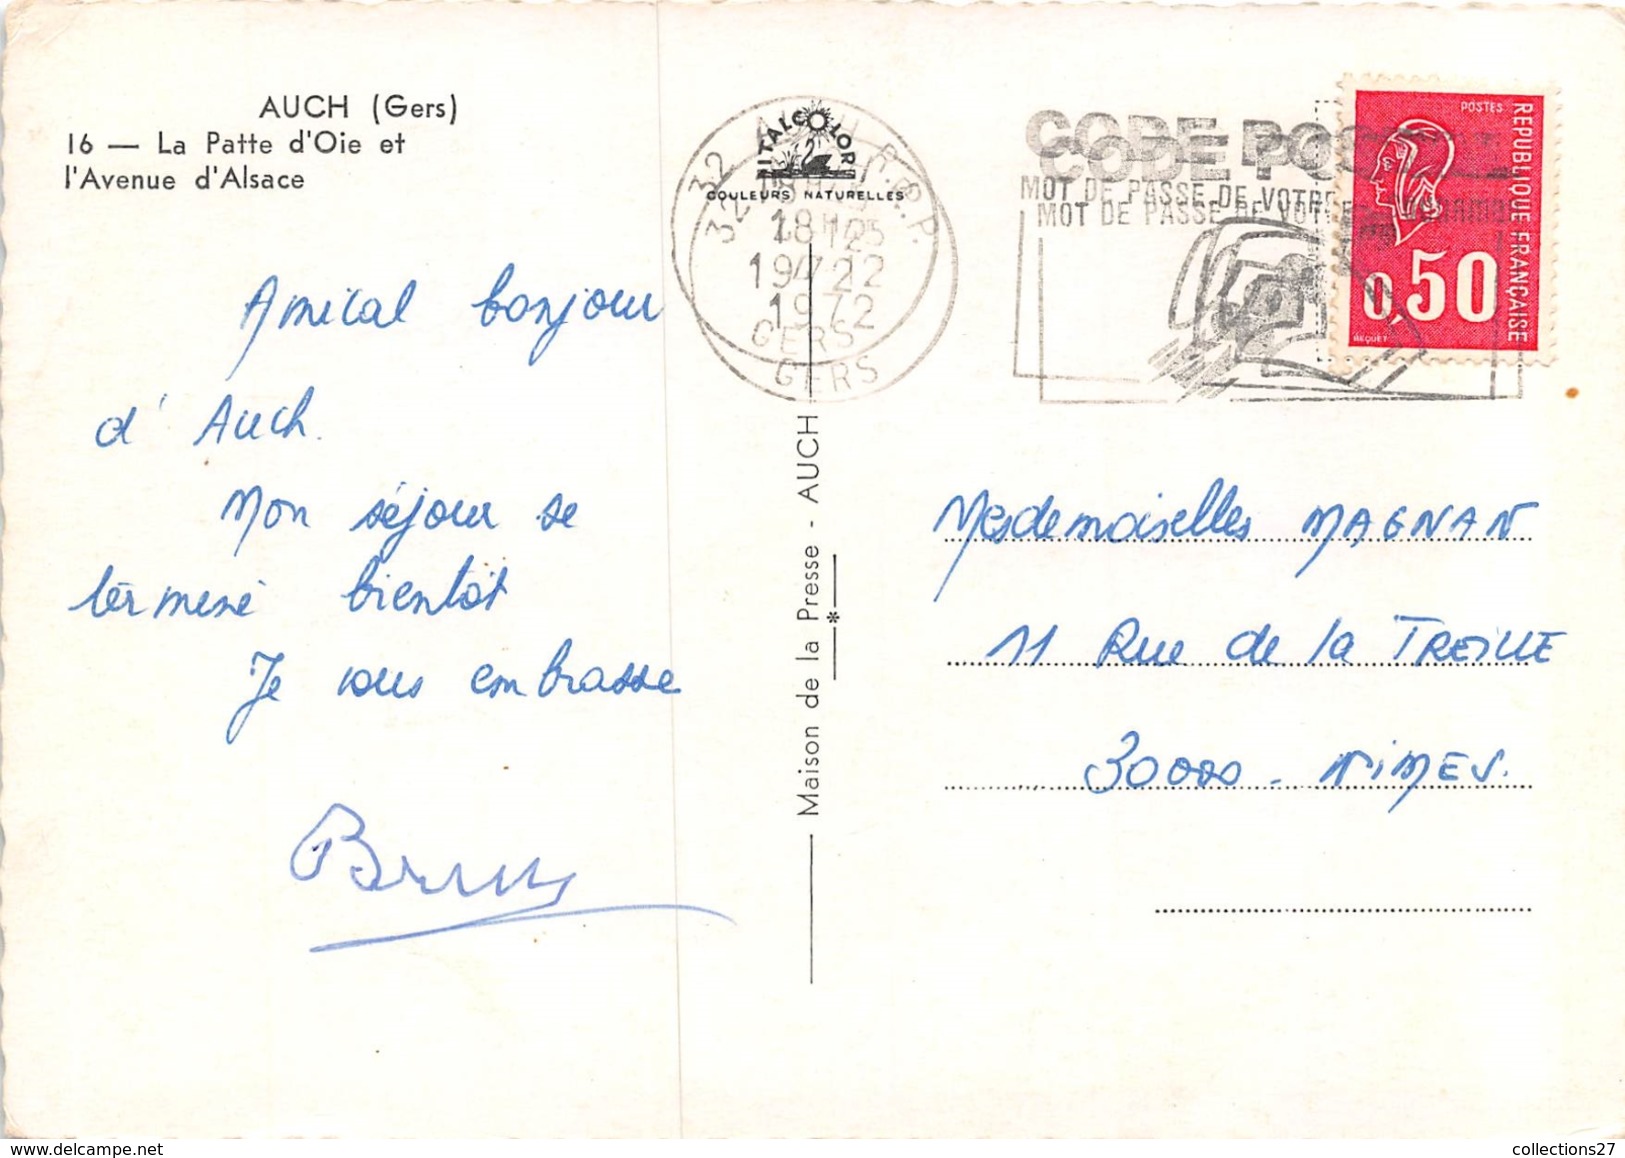 AUCH (Gers)
16 — La Patte d'Oie et
l'Avenue d'Alsace
Amical bonjour
d'Auch.
Mon séjour se
termine bientôt
Je vous embrasse
ITALCOLOR
COULEURS NATURELLES
32 R.P.
18H25
19/7
1972
GERS
GERS
CODE POSTAL
CODE PO
MOT DE PASSE DE VOTRE
MOT DE PASSE DE VOTRE
POSTES
REPUBLIQUE FRANÇAISE
0,50
BEQUET
Maison de la Presse - AUCH
Mesdemoiselles MAGNAN
11 Rue de la TREILLE
30000 - NIMES.
collections27